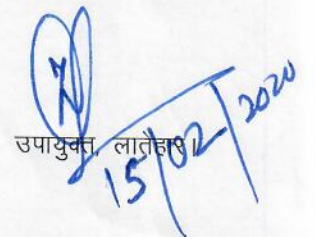 उपायुक्त, लातेहार।
15/02/2020